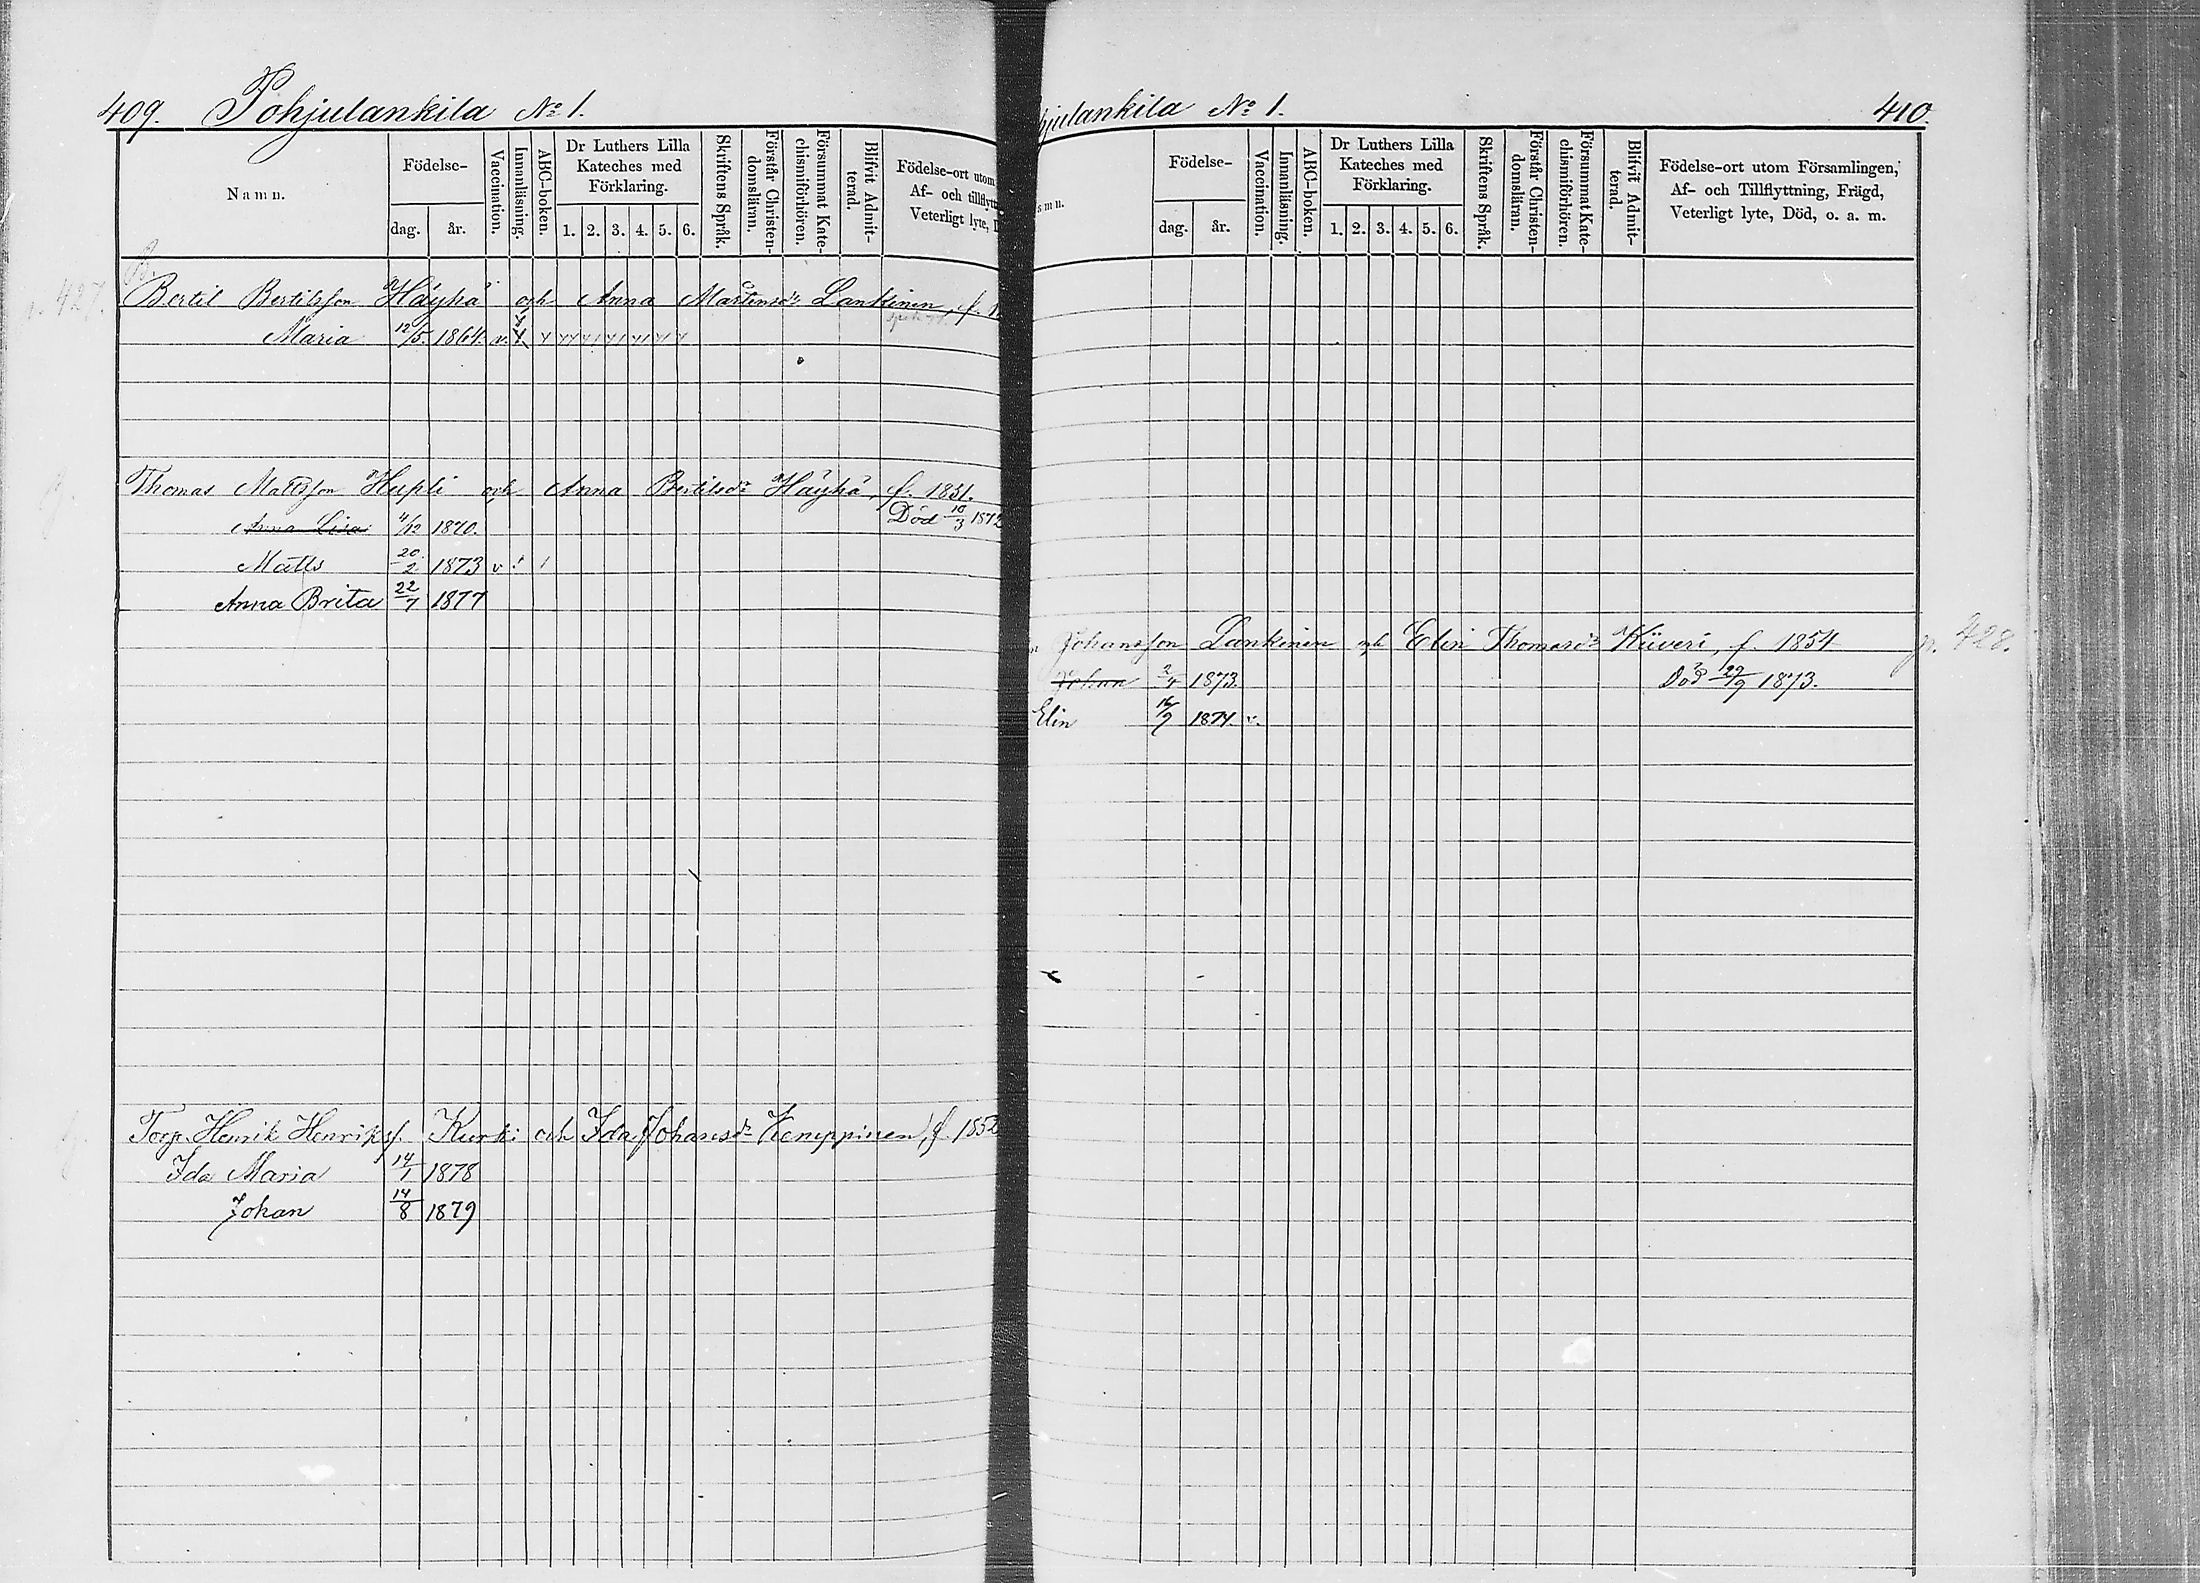 409. Pohjulankila No 1.
Namn.
Födelse-
dag.
år.
Vaccination.
Innanläsning.
ABC-boken.
Dr Luthers Lilla
Kateches med
Förklaring.
1. 2. 3. 4. 5. 6.
Skriftens Språk.
Förstår Christen-
domsläran.
Försummat Kate-
chismiförhören.
Blifvit Admit-
terad.
Födelse-ort utom
Af- och tillflytt
Veterligt lyte,
p. 427.
Bertil Bertilsson Häyhä och Anna Mårtensdr Lankinen, f.
Maria 12/5. 1864. v.
Thomas Mattsson Hupli och Anna Bertilsdr Häyhä, f. 1831.
Anna Lisa 4/12 1870. Död 10/3 1872
Matts 20/2 1873 v
Anna Brita 22/7 1877
Torp. Henrik Henrikss. Kurki och Ida Johansdr Kemppinen, f. 1852
Ida Maria 14/1 1878
Johan 14/8 1879
hjulankila No 1. 410.
amn.
Födelse-
dag.
år.
Vaccination.
Innanläsning.
ABC-boken.
Dr Luthers Lilla
Kateches med
Förklaring.
1. 2. 3. 4. 5. 6.
Skriftens Språk.
Förstår Christen-
domsläran.
Försummat Kate-
chismiförhören.
Blifvit Admit-
terad.
Födelse-ort utom Församlingen,
Af- och Tillflyttning, Frägd,
Veterligt lyte, Död, o. a. m.
Johansson Lankinen och Elin Thomasdr Kiiveri, f. 1854 p. 428.
Johan 2/4 1873. Död 29/9 1873.
Elin 16/9 1874. v.